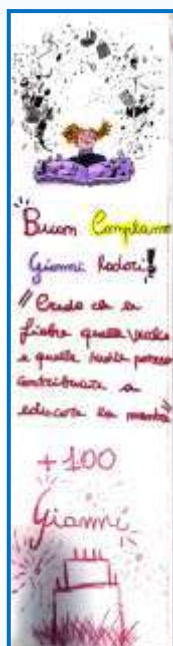 "Buon Complean
Gianni Rodari!
"Credo ch le
fiabe quelle vecchie
e quelle nuove possono
contribuire a
educare la mente"
+100
Gianni